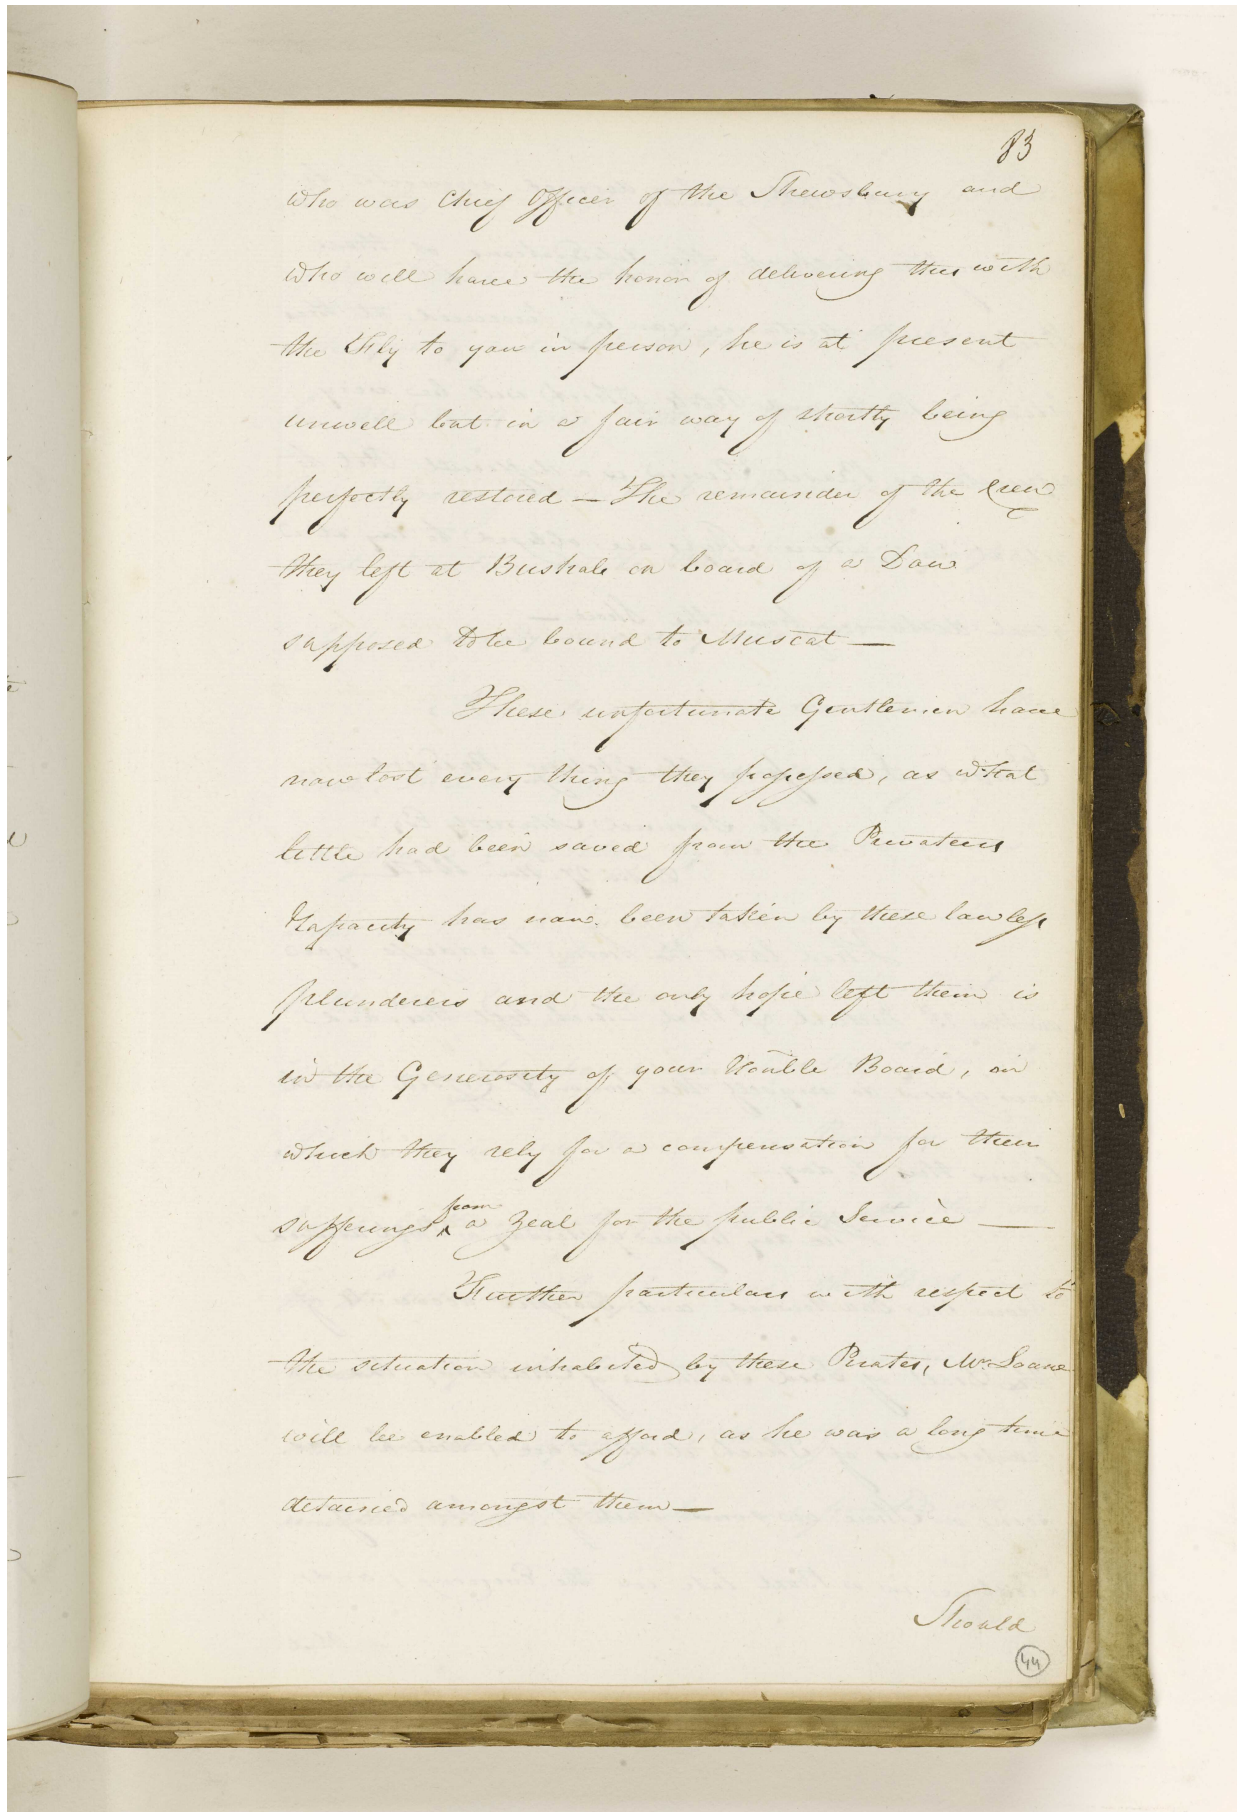 83
who was Chief Officer of the Shrewsbury and
who will have the honor of delivering this with
the Fly to you in person, he is at present
unwell but in a fair way of shortly being
perfectly restored — The remainder of the Crew
they left at Bushale on board of a Dow
supposed to be bound to Muscat —
These unfortunate Gentlemen have
now lost every thing they possessed, as what
little had been saved from the Privateers
Rapacity has now been taken by these lawless
plunderers and the only hope left them is
in the Generosity of your Honble Board, on
which they rely for a compensation for their
from
sufferings ^ a Zeal for the public Service —
Further particulars with respect to
the situation inhabited by these Pirates, Mr. Loane
will be enabled to afford, as he was a long time
detained amongst them —
Should
44